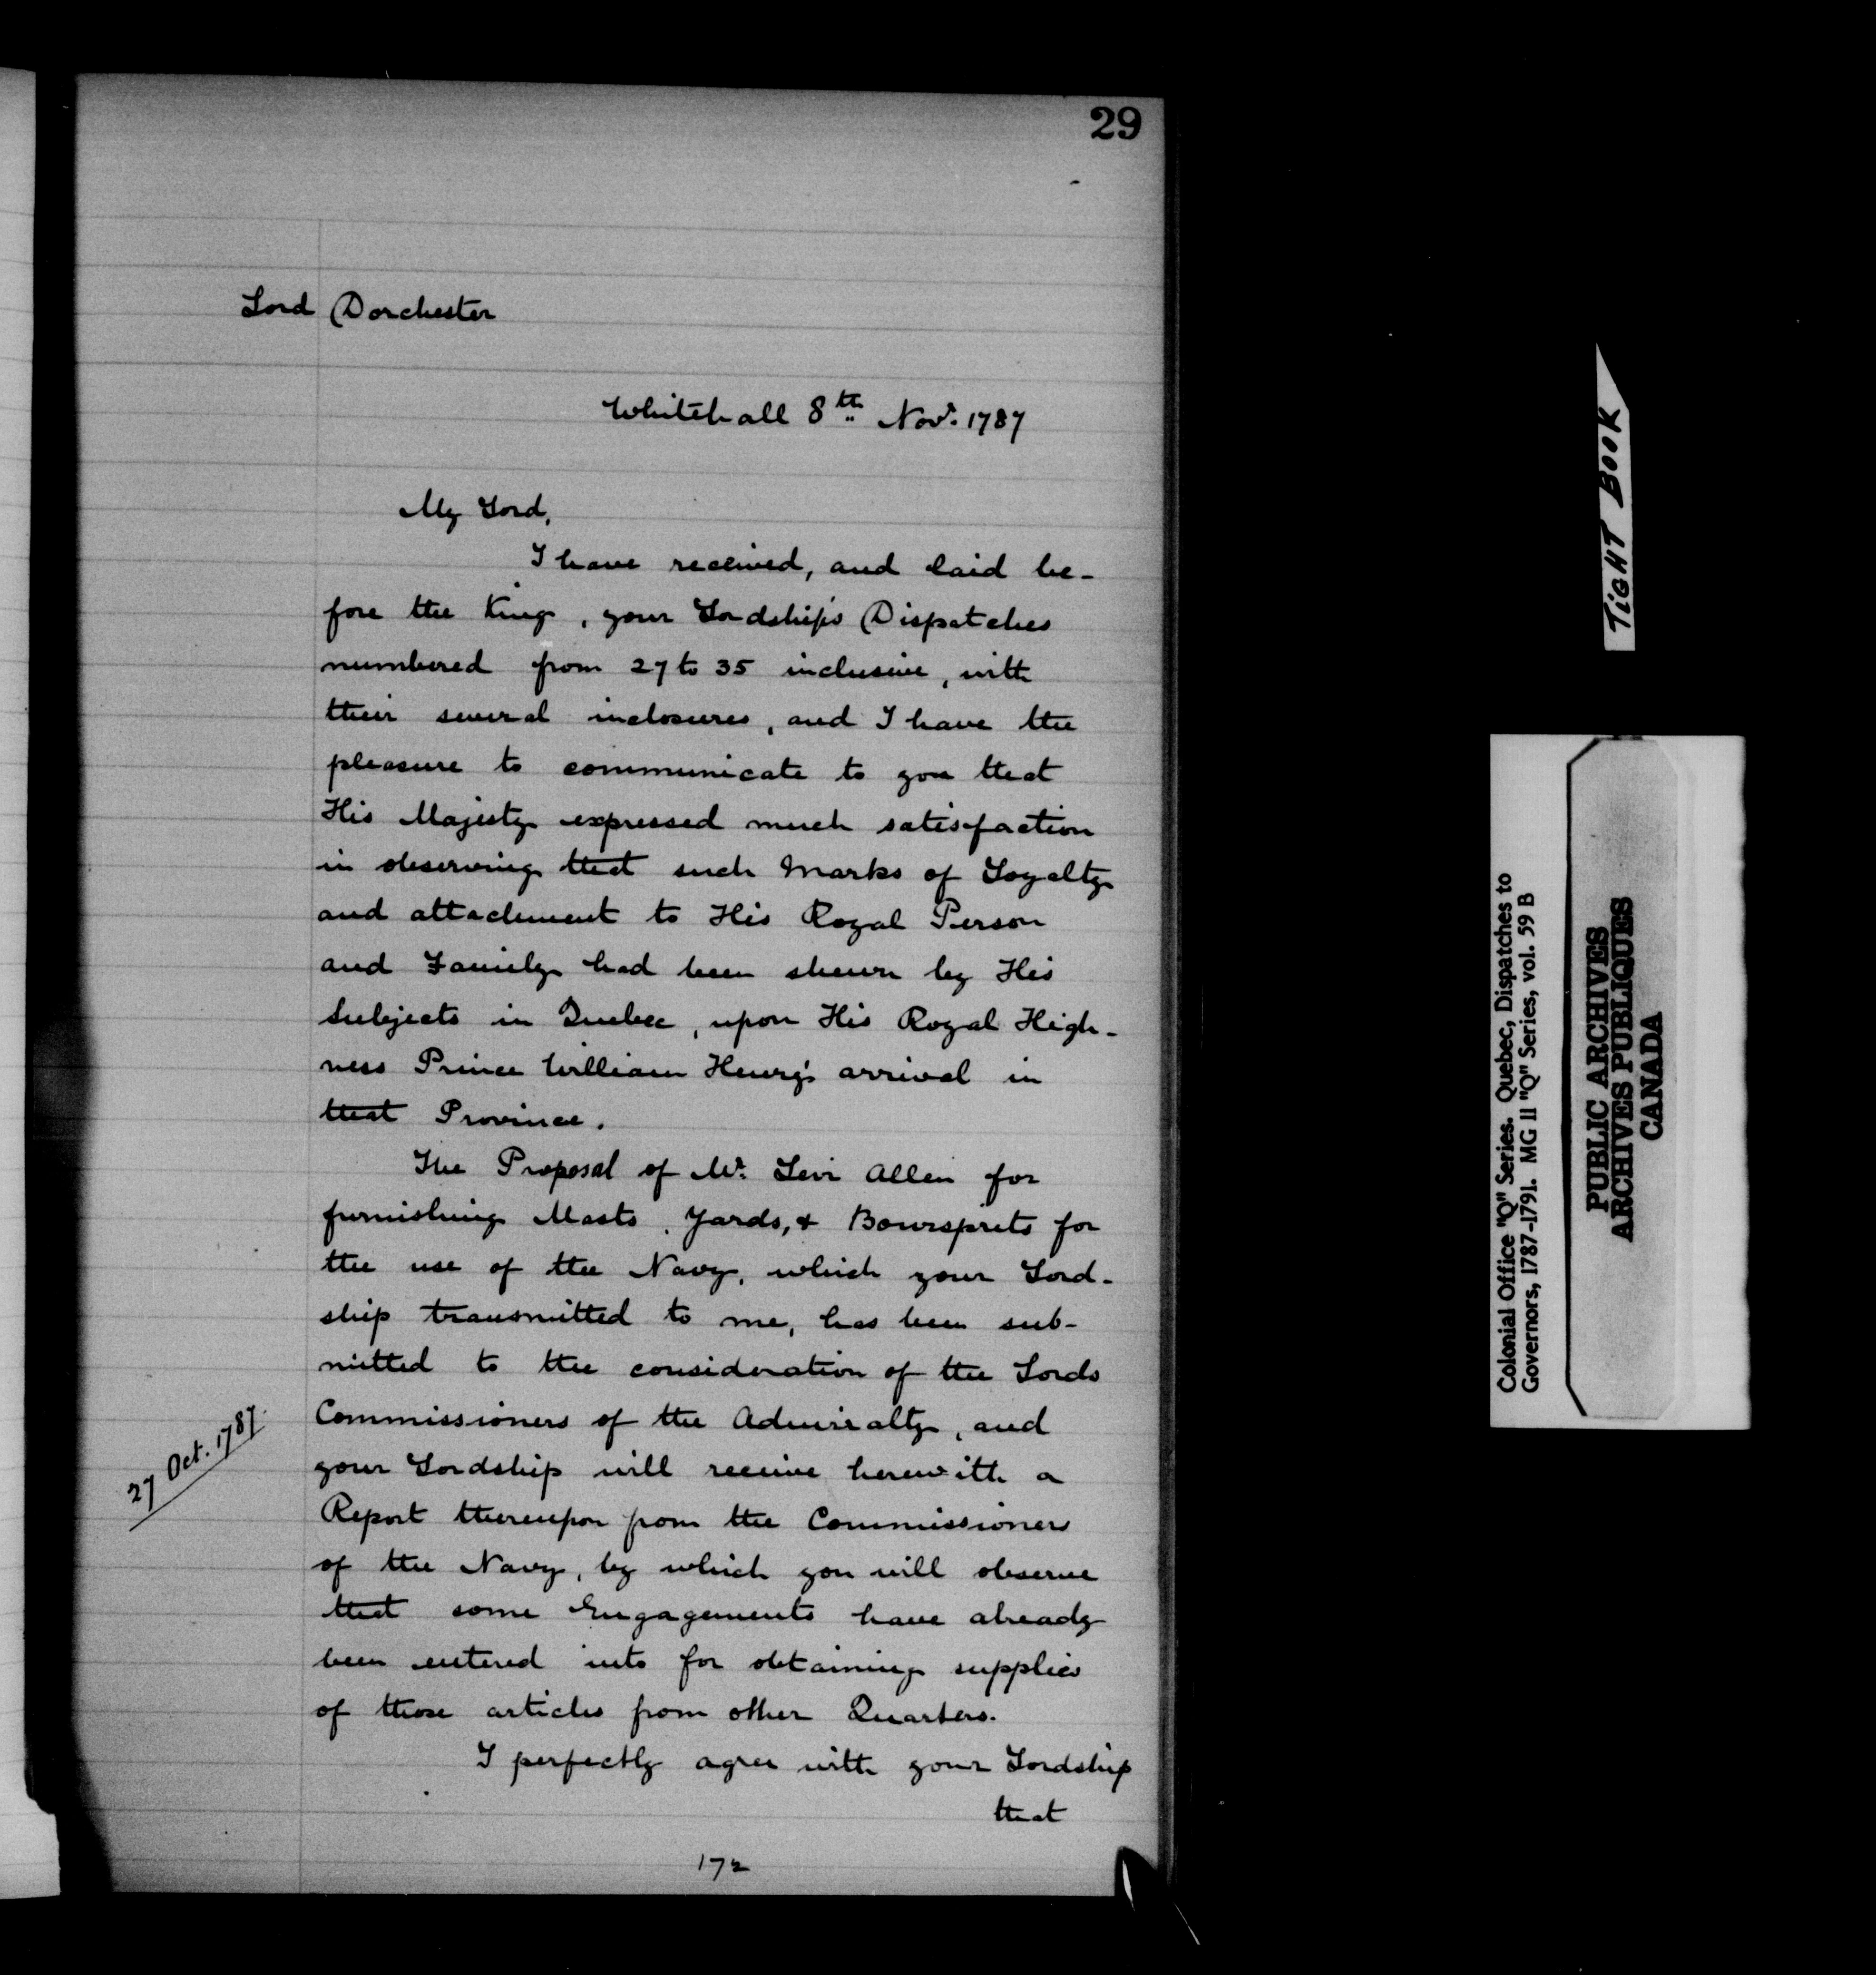 29
Lord Dorchester
Whitehall 8th Novr. 1787
My Lord,
I have received, and laid be-
fore the King, your Lordship's Dispatches
numbered from 27 to 35 inclusive, with
their several inclosures, and I have the
pleasure to communicate to you that
His Majesty expressed much satisfaction
in observing that such Marks of Loyalty
and attachment to His Royal Person
and Family had been shewn by His
Subjects in Quebec, upon His Royal High-
ness Prince William Henry's arrival in
that Province.
The Proposal of Mr. Levi Allen for
furnishing Masts, Yards, & Bowsprits for
the use of the Navy, which your Lord-
ship transmitted to me, has been sub-
mitted to the consideration of the Lords
Commissioners of the Admiralty, and
27 Oct. 1787.
your Lordship will receive herewith a
Report thereupon from the Commissioners
of the Navy, by which you will observe
that some Engagements have already
been entered into for obtaining supplies
of those articles from other Quarters.
I perfectly agree with your Lordship
that
172
TIGHT BOOK
Colonial Office "Q" Series. Quebec, Dispatches to
Governors, 1787-1791. MG 11 "Q" Series, vol. 59 B
PUBLIC ARCHIVES
ARCHIVES PUBLIQUES
CANADA